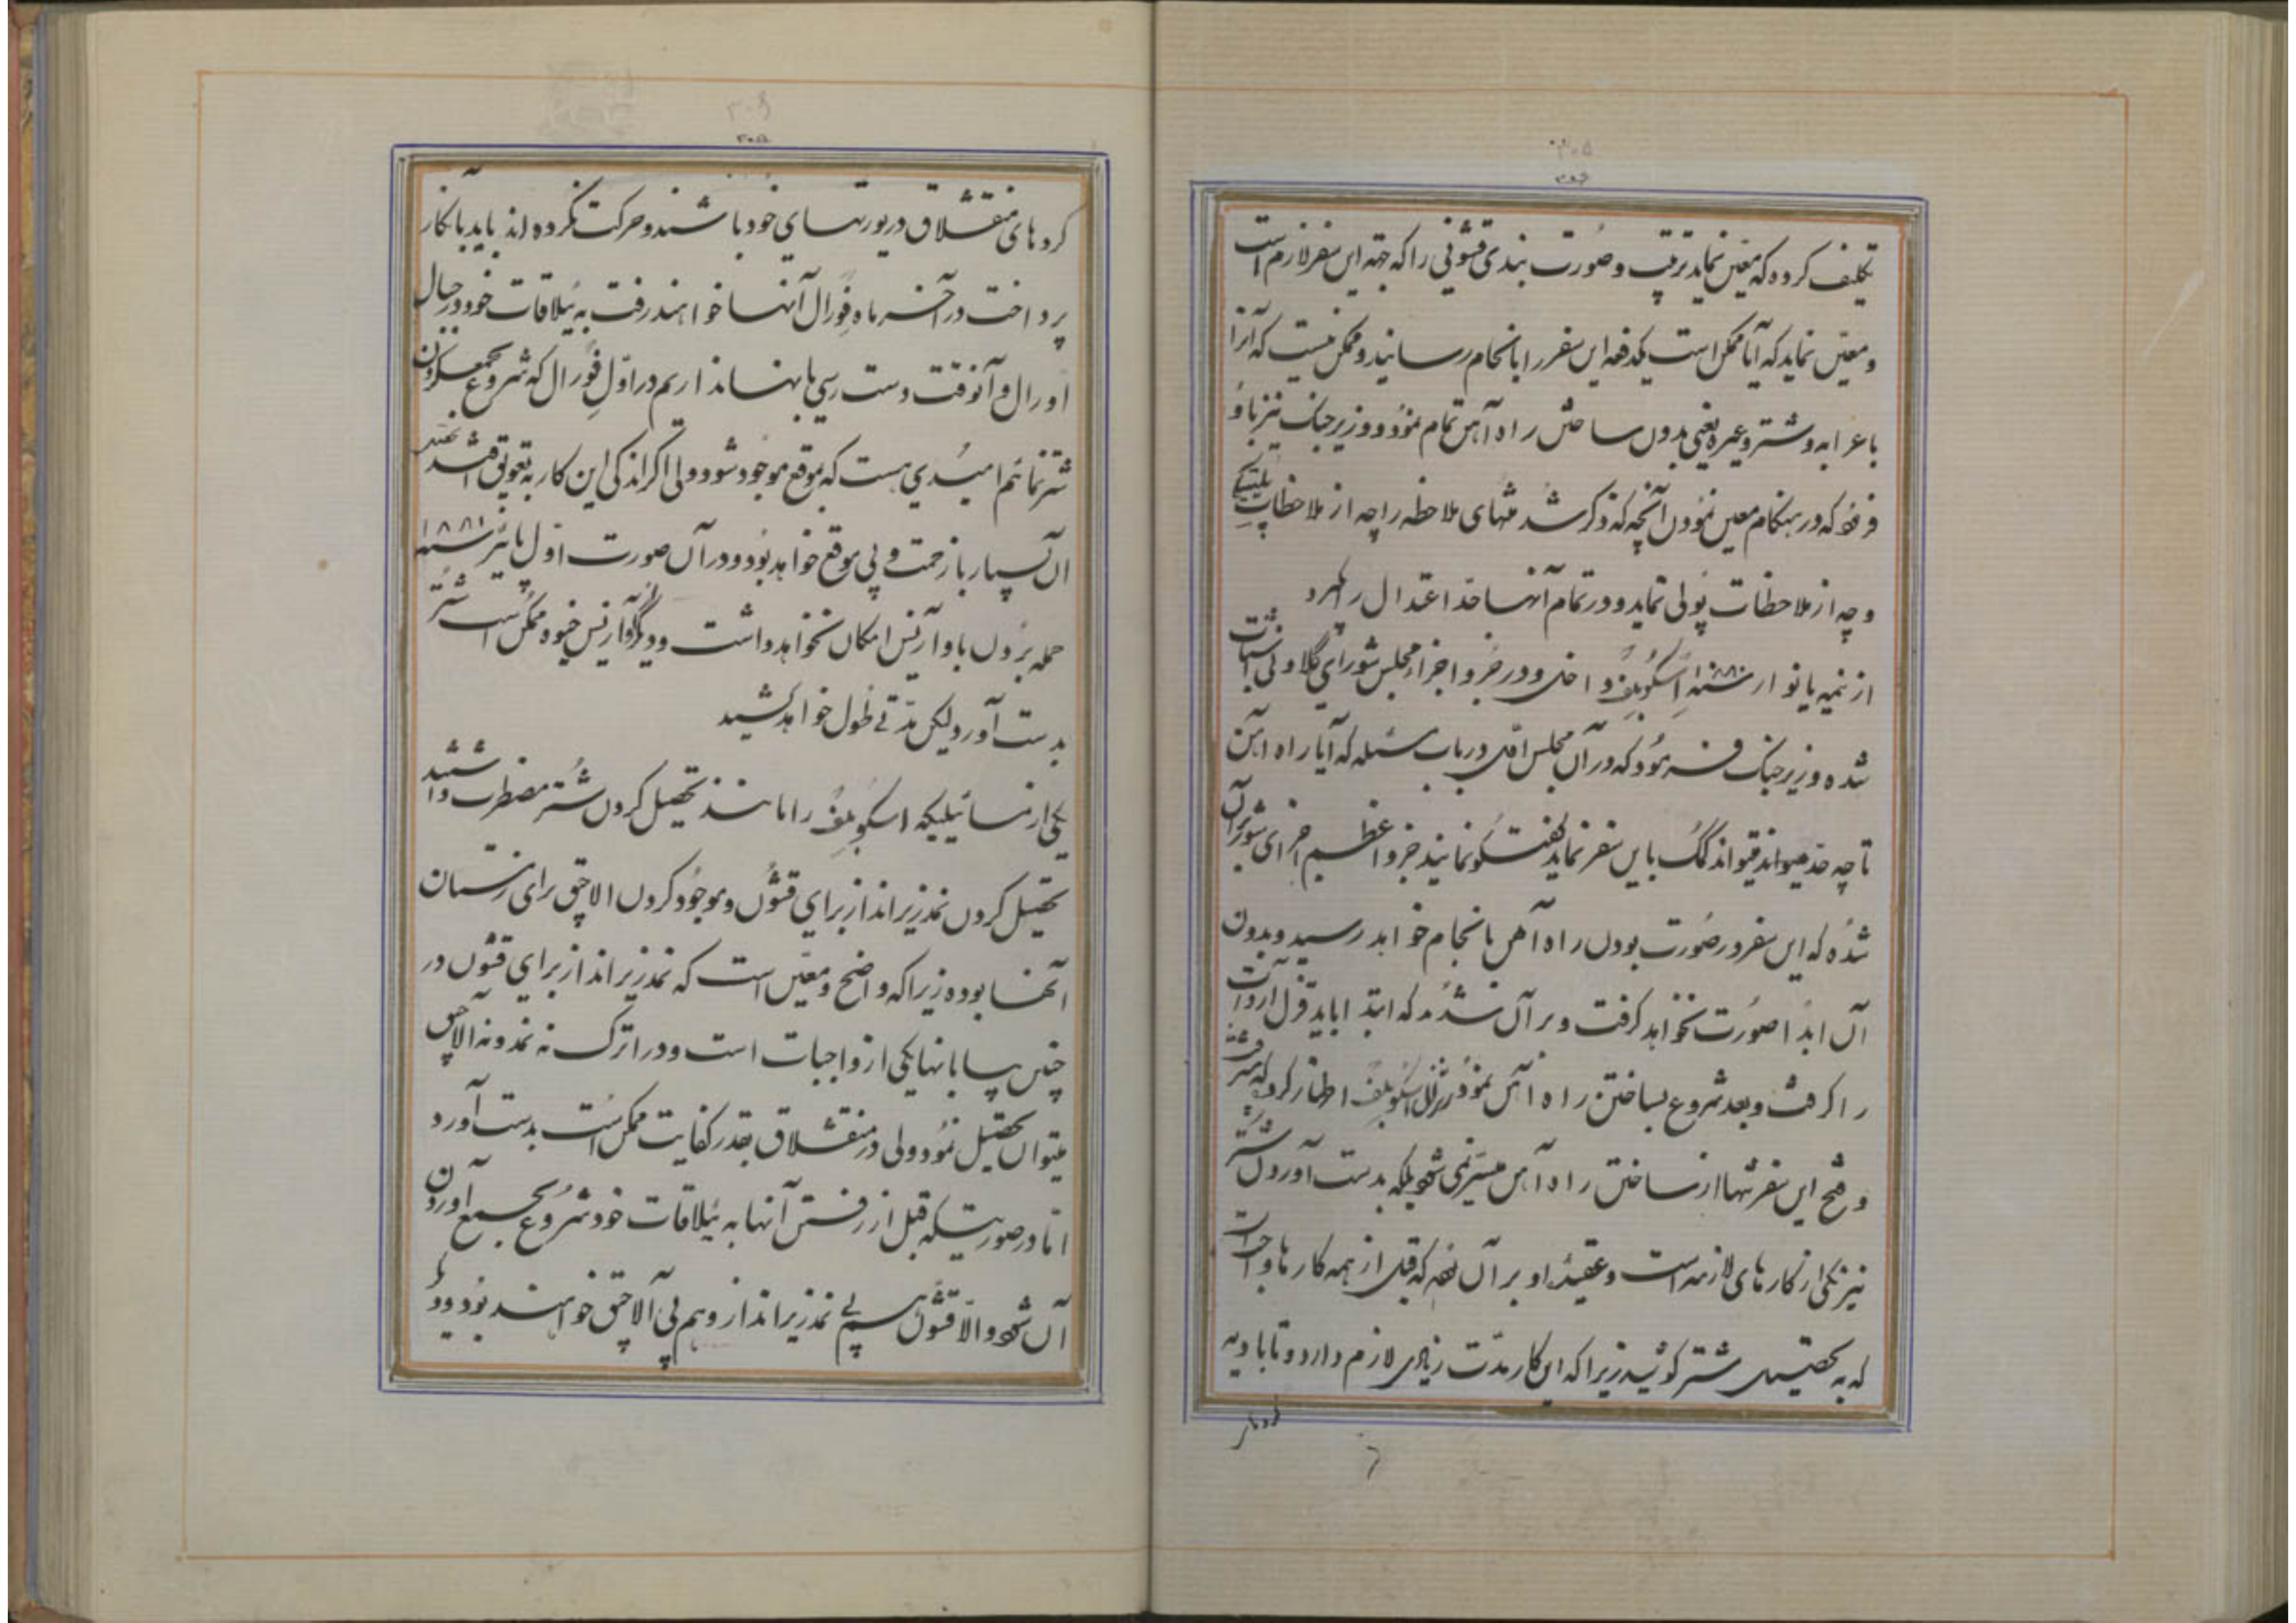 ۳۰۵
تکلیف کرده که معیّن نماید ترتیب و صورت بندی قشونی را که جهته این سفر لازم است
و معیّن نماید که آیا ممکن است یکدفعه این سفر را بانجام رسانید و ممکن نیست که آنرا
با عرابه و شتر و غیره یعنی بدون ساختن راه آهن تمام نمود و وزیر جنک نیز باو
فرموده که در هنکام معین نمودن آنچه که ذکر شد منتهای ملاحظه را چه از ملاحظات پلتیکی
و چه از ملاحظات پولی نماید و در تمام آنها حدّ اعتدال را گیرد
از نیمه یانوار سنه ۱۸۸۰ اسکوبلف داخل و در جزو اجزاء مجلس شورای
شده وزیر جنک فرموده که در آن مجلس اوّلی در باب مسئله که آیا راه آهن
تا چه حدّ میتواند کمک باین سفر نماید گفتگو نمایند جزو اعظم اجزای شورا بر آن
شده که این سفر در صورت بودن راه آهن بانجام خواهد رسید و بدون
آن ابدا صورت نخواهد کرفت و بر آن شدند که ابتدا باید قزل اروات
را کرفت و بعد شروع بساختن راه آهن نمود ژنرال اسکوبلف اظهار کرد که پیشرفت
و فتح این سفر تنها از ساختن راه آهن میسّر نمی شود بلکه بدست آوردن شتر
نیز یکی از کارهای لازمه است و عقیدۀ او بر آن بوده که قبل از همه کارها واجب است
که به تحصیل شتر کوشید زیرا که این کار مدّت زیادی لازم دارد و تا بادیه
کردهای
۳۰۶
۳۰۵
کردهای منقشلاق در یورتهای خود باشند و حرکت نکرده اند باید بآنکار
پرداخت در آخر ماه فورال آنها خواهند رفت به ییلاقات خود در جبال
اورال و آنوقت دست رسی بآنها نداریم در اوّل فورال که شروع بجمع کردن
شتر نمائیم امیدی هست که بموقع موجود شود ولی اگر اندکی این کار به تعویق افتد
آن بسیار با زحمت و بی موقع خواهد بود و در آن صورت اوّل پائیز سنه ۱۸۸۱
حمله بردن باو امکان نخواهد داشت و خیوه ممکن است شتر
بدست آورد لیکن مدّتی طول خواهد کشید
یکی از مسائیلیکه اسکوبلف را مانند تحصیل کردن شتر مضطرب داشت
تحصیل کردن نمد زیر انداز برای قشون و موجود کردن الاچق برای زمستان
آنها بوده زیرا که واضح و معیّن است که نمد زیر انداز برای قشون در
چنین بیابانها یکی از واجبات است و در اترک نه نمد و نه الاچق
میتوان تحصیل نمود ولی در منقشلاق بقدر کفایت ممکن است بدست آورد
امّا در صورتیکه قبل از رفتن آنها به ییلاقات خود شروع بجمع آوردن
آن شود والاّ قشون هم بی نمد زیر انداز و هم بی آلاچق خواهند بود